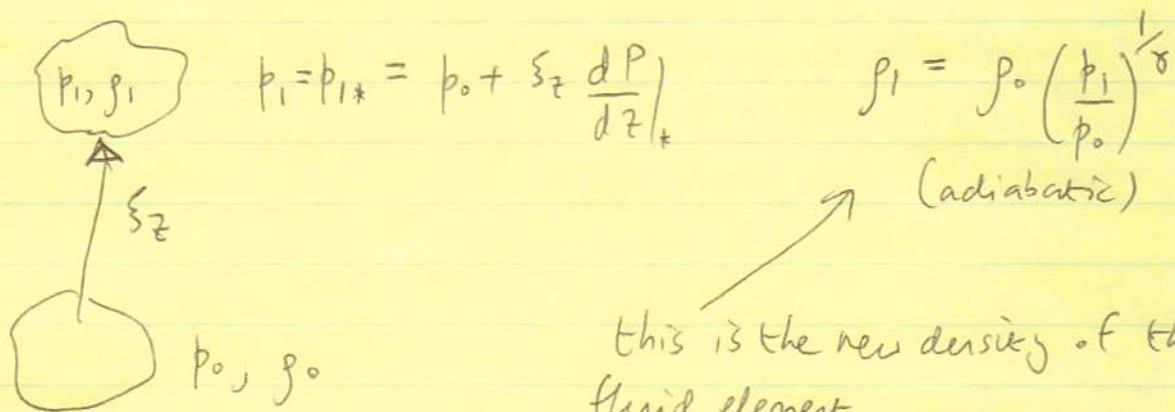 p₁, ρ₁ p₁ = p₁* = p₀ + ξz dP/dz|* ρ₁ = ρ₀ (p₁/p₀)^1/γ
(adiabatic)
ξz
this is the new density of th
p₀, ρ₀
fluid element